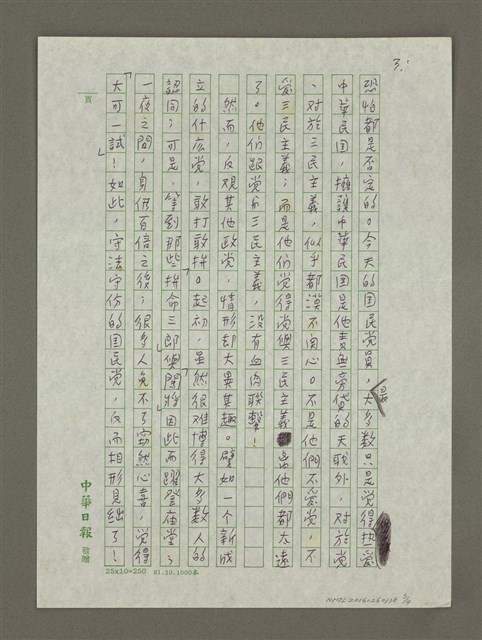 3.
恐怕都是否定的。今天的国民党員，大多数只是觉得热爱
最
中華民国，擁護中華民国是他責無旁貸的天职外，对於党
、对於三民主義，似乎都漠不関心。不是他們不爱党，不
爱三民主義；而是他们觉得党與三民主義離他們都太遠
了。他们跟党和三民主義，没有血肉联繫！
然而，反观其他政党，情形却大異其趣。譬如一个新成
立的什広党，敢打敢拼。起初，虽然很难博得大多数人的
認同；可是，等到那些「拼命三郎」與「闖將」因此而躍登庙堂；
一夜之間，身価百倍之後；很多人免不了窃然心喜，觉得
「大可一試」！如此，守法守份的国民党，反而相形見绌了！
頁
中華日報 敬贈
25x10=250 81.10.1000本
NMTL20160260138 3/4